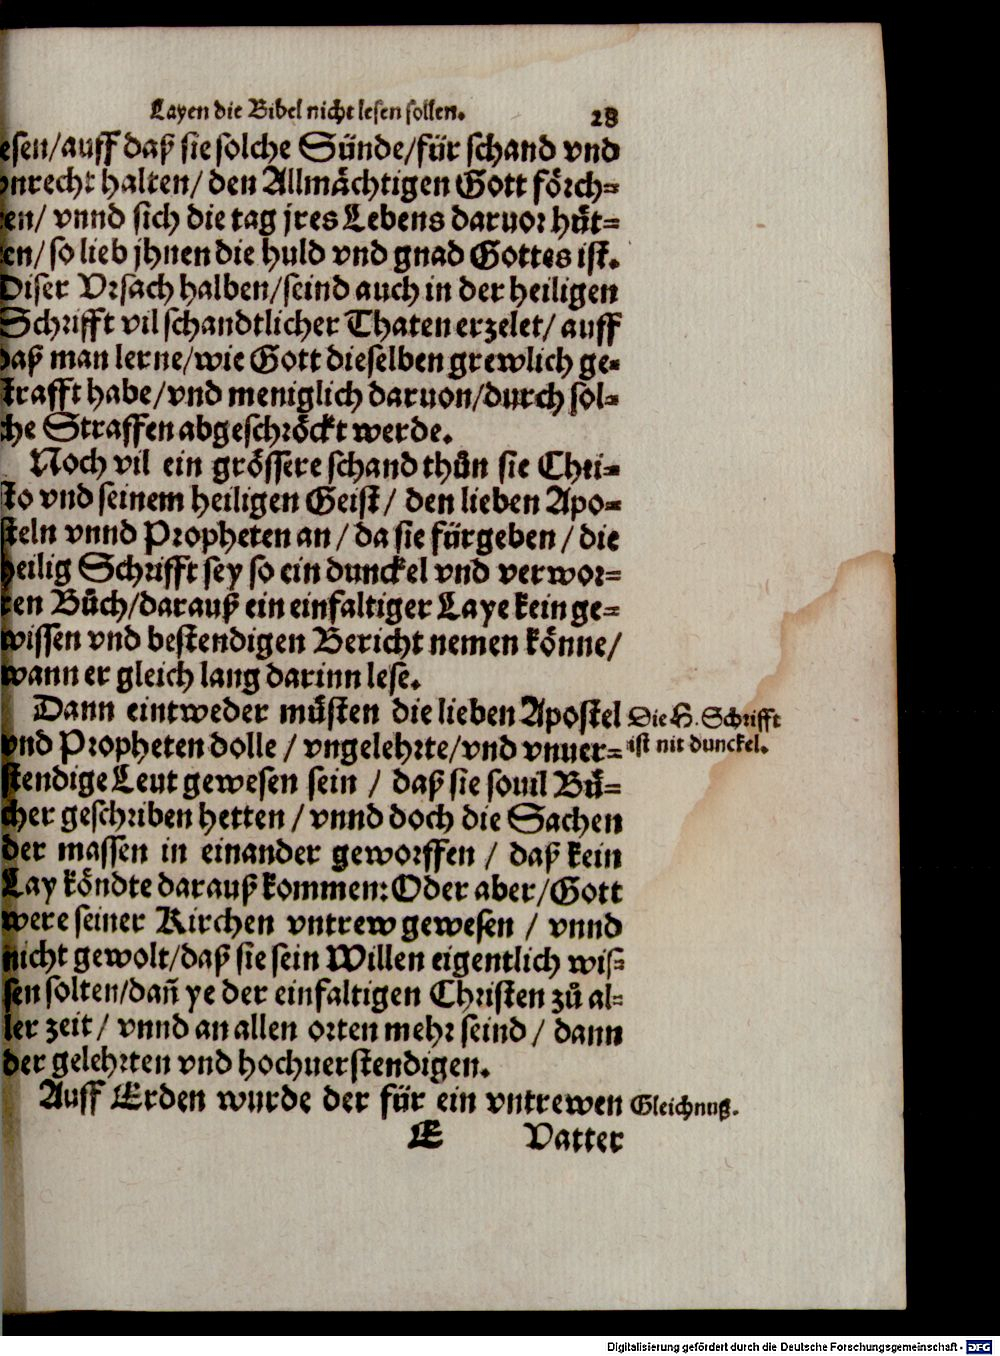 Layen die Bibel nicht lesen sollen. 28
esen/auff daß sie solche Sünde/für schand vnd
nrecht halten/ den Allmächtigen Gott förch-
en/ vnnd sich die tag jres Lebens daruor hüt-
en/ so lieb jhnen die huld vnd gnad Gottes ist.
Diser Vrsach halben/seind auch in der heiligen
Schrifft vil schandtlicher Thaten erzelet/ auff
daß man lerne/wie Gott dieselben grewlich ge-
strafft habe/vnd meniglich daruon/durch sol-
che Straffen abgeschröckt werde.
Noch vil ein grössere schand thůn sie Chri-
sto vnd seinem heiligen Geist/ den lieben Apo-
steln vnnd Propheten an/ da sie fürgeben/ die
heilig Schrifft sey so ein dunckel vnd verwor-
ren Bůch/darauß ein einfaltiger Laye kein ge-
wissen vnd bestendigen Bericht nemen könne/
wann er gleich lang darinn lese.
Dann eintweder müsten die lieben Apostel
vnd Propheten dolle/ vngelehrte/vnd vnuer-
stendige Leut gewesen sein/ daß sie souil Bü-
cher geschriben hetten/ vnnd doch die Sachen
der massen in einander geworffen/ daß kein
Lay köndte darauß kommen: Oder aber/Gott
were seiner Kirchen vntrew gewesen/ vnnd
nicht gewolt/daß sie sein Willen eigentlich wis-
sen solten/dañ ye der einfaltigen Christen zů al-
ler zeit/ vnnd an allen orten mehr seind/ dann
der gelehrten vnd hochuerstendigen.
Auff Erden wurde der für ein vntrewen
E Vatter
Die H. Schrifft
ist nit dunckel.
Gleichnuß.
Digitalisierung gefördert durch die Deutsche Forschungsgemeinschaft - DFG